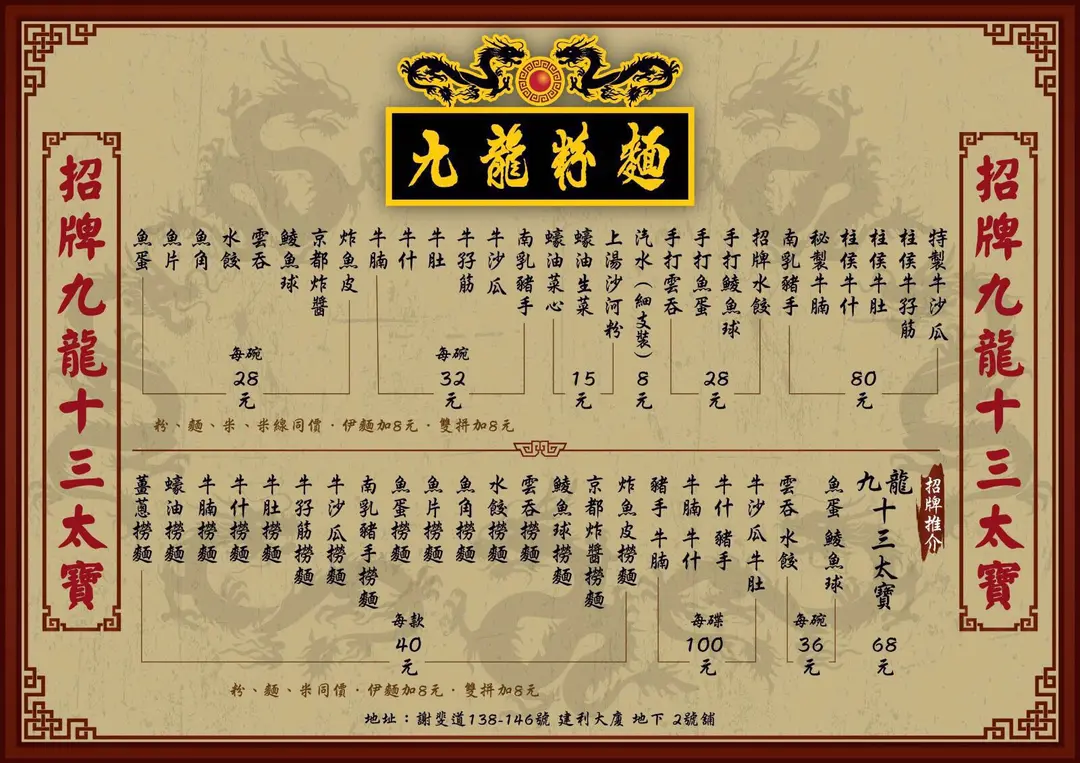 九龍粉麵
招牌九龍十三太寶
特製牛沙瓜
柱侯牛孖筋
柱侯牛肚
柱侯牛什
秘製牛腩
南乳豬手
80
元
招牌水餃
手打鯪魚球
手打魚蛋
手打雲吞
28
元
汽水(細支裝)
8
元
上湯沙河粉
蠔油生菜
蠔油菜心
15
元
南乳豬手
牛沙瓜
牛孖筋
牛肚
牛什
牛腩
每碗
32
元
炸魚皮
京都炸醬
鯪魚球
雲吞
水餃
魚角
魚片
魚蛋
每碗
28
元
粉、麵、米、米線同價·伊麵加8元·雙拼加8元
招牌推介
九龍十三太寶
68
元
魚蛋 鯪魚球
雲吞 水餃
每碗
36
元
牛沙瓜牛肚
牛什 豬手
牛腩 牛什
豬手 牛腩
每碟
100
元
炸魚皮撈麵
京都炸醬撈麵
鯪魚球撈麵
雲吞撈麵
水餃撈麵
魚角撈麵
魚片撈麵
魚蛋撈麵
南乳豬手撈麵
牛沙瓜撈麵
牛孖筋撈麵
牛肚撈麵
牛什撈麵
牛腩撈麵
蠔油撈麵
薑蔥撈麵
每款
40
元
粉、麵、米同價·伊麵加8元·雙拼加8元
地址:謝斐道138-146號 建利大廈 地下 2號舖
招牌九龍十三太寶